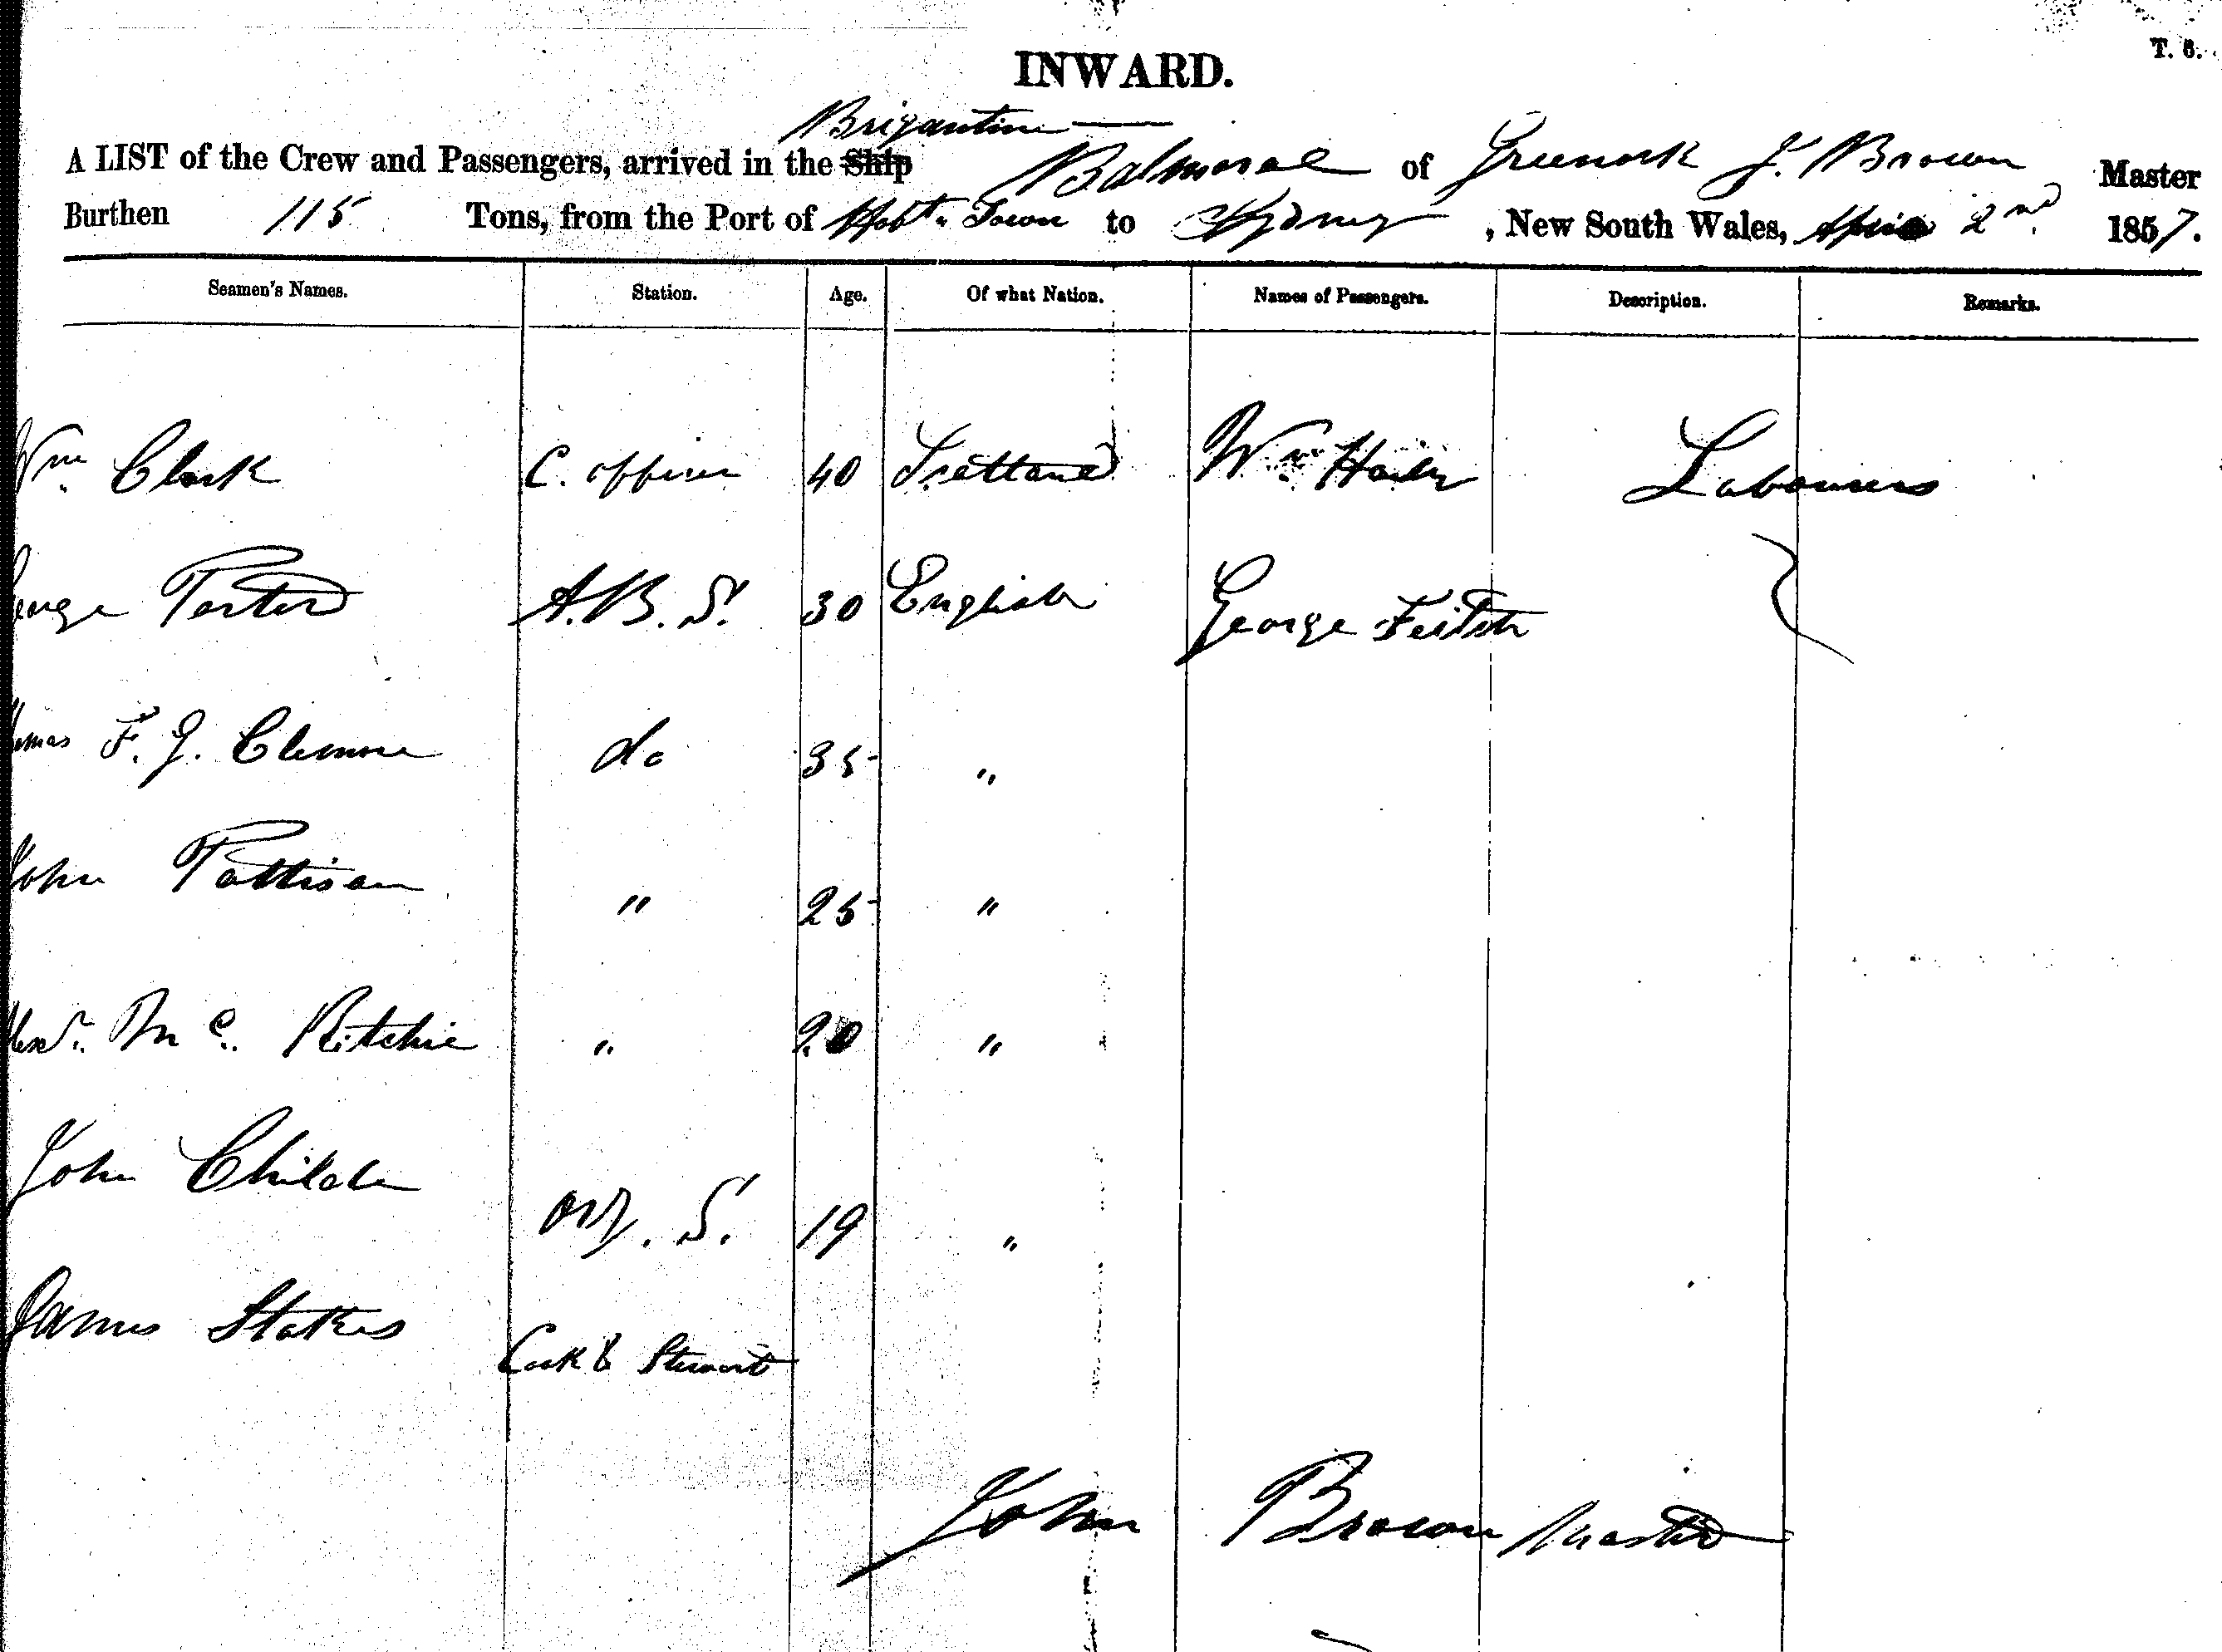 T. 6.
INWARD.
Brigantine
A LIST of the Crew and Passengers, arrived in the Ship Balmoral of Greenock J. Brown Master
Burthen 115 Tons, from the Port of Hobt. Town to Sydney, New South Wales, April 2nd 1857.
Seamen's Names. Station. Age. Of what Nation. Names of Passengers. Description. Remarks.
Wm. Clark C. officer 40 Wm. Labourers
George A.B. S. 30 English George
Thomas F. J. do 35 "
John Pattison " 25 "
Alexr. Mc. Ritchie " 20 "
John Ord. S. 19 "
James Stokes Cook & Steward
John Brown Master